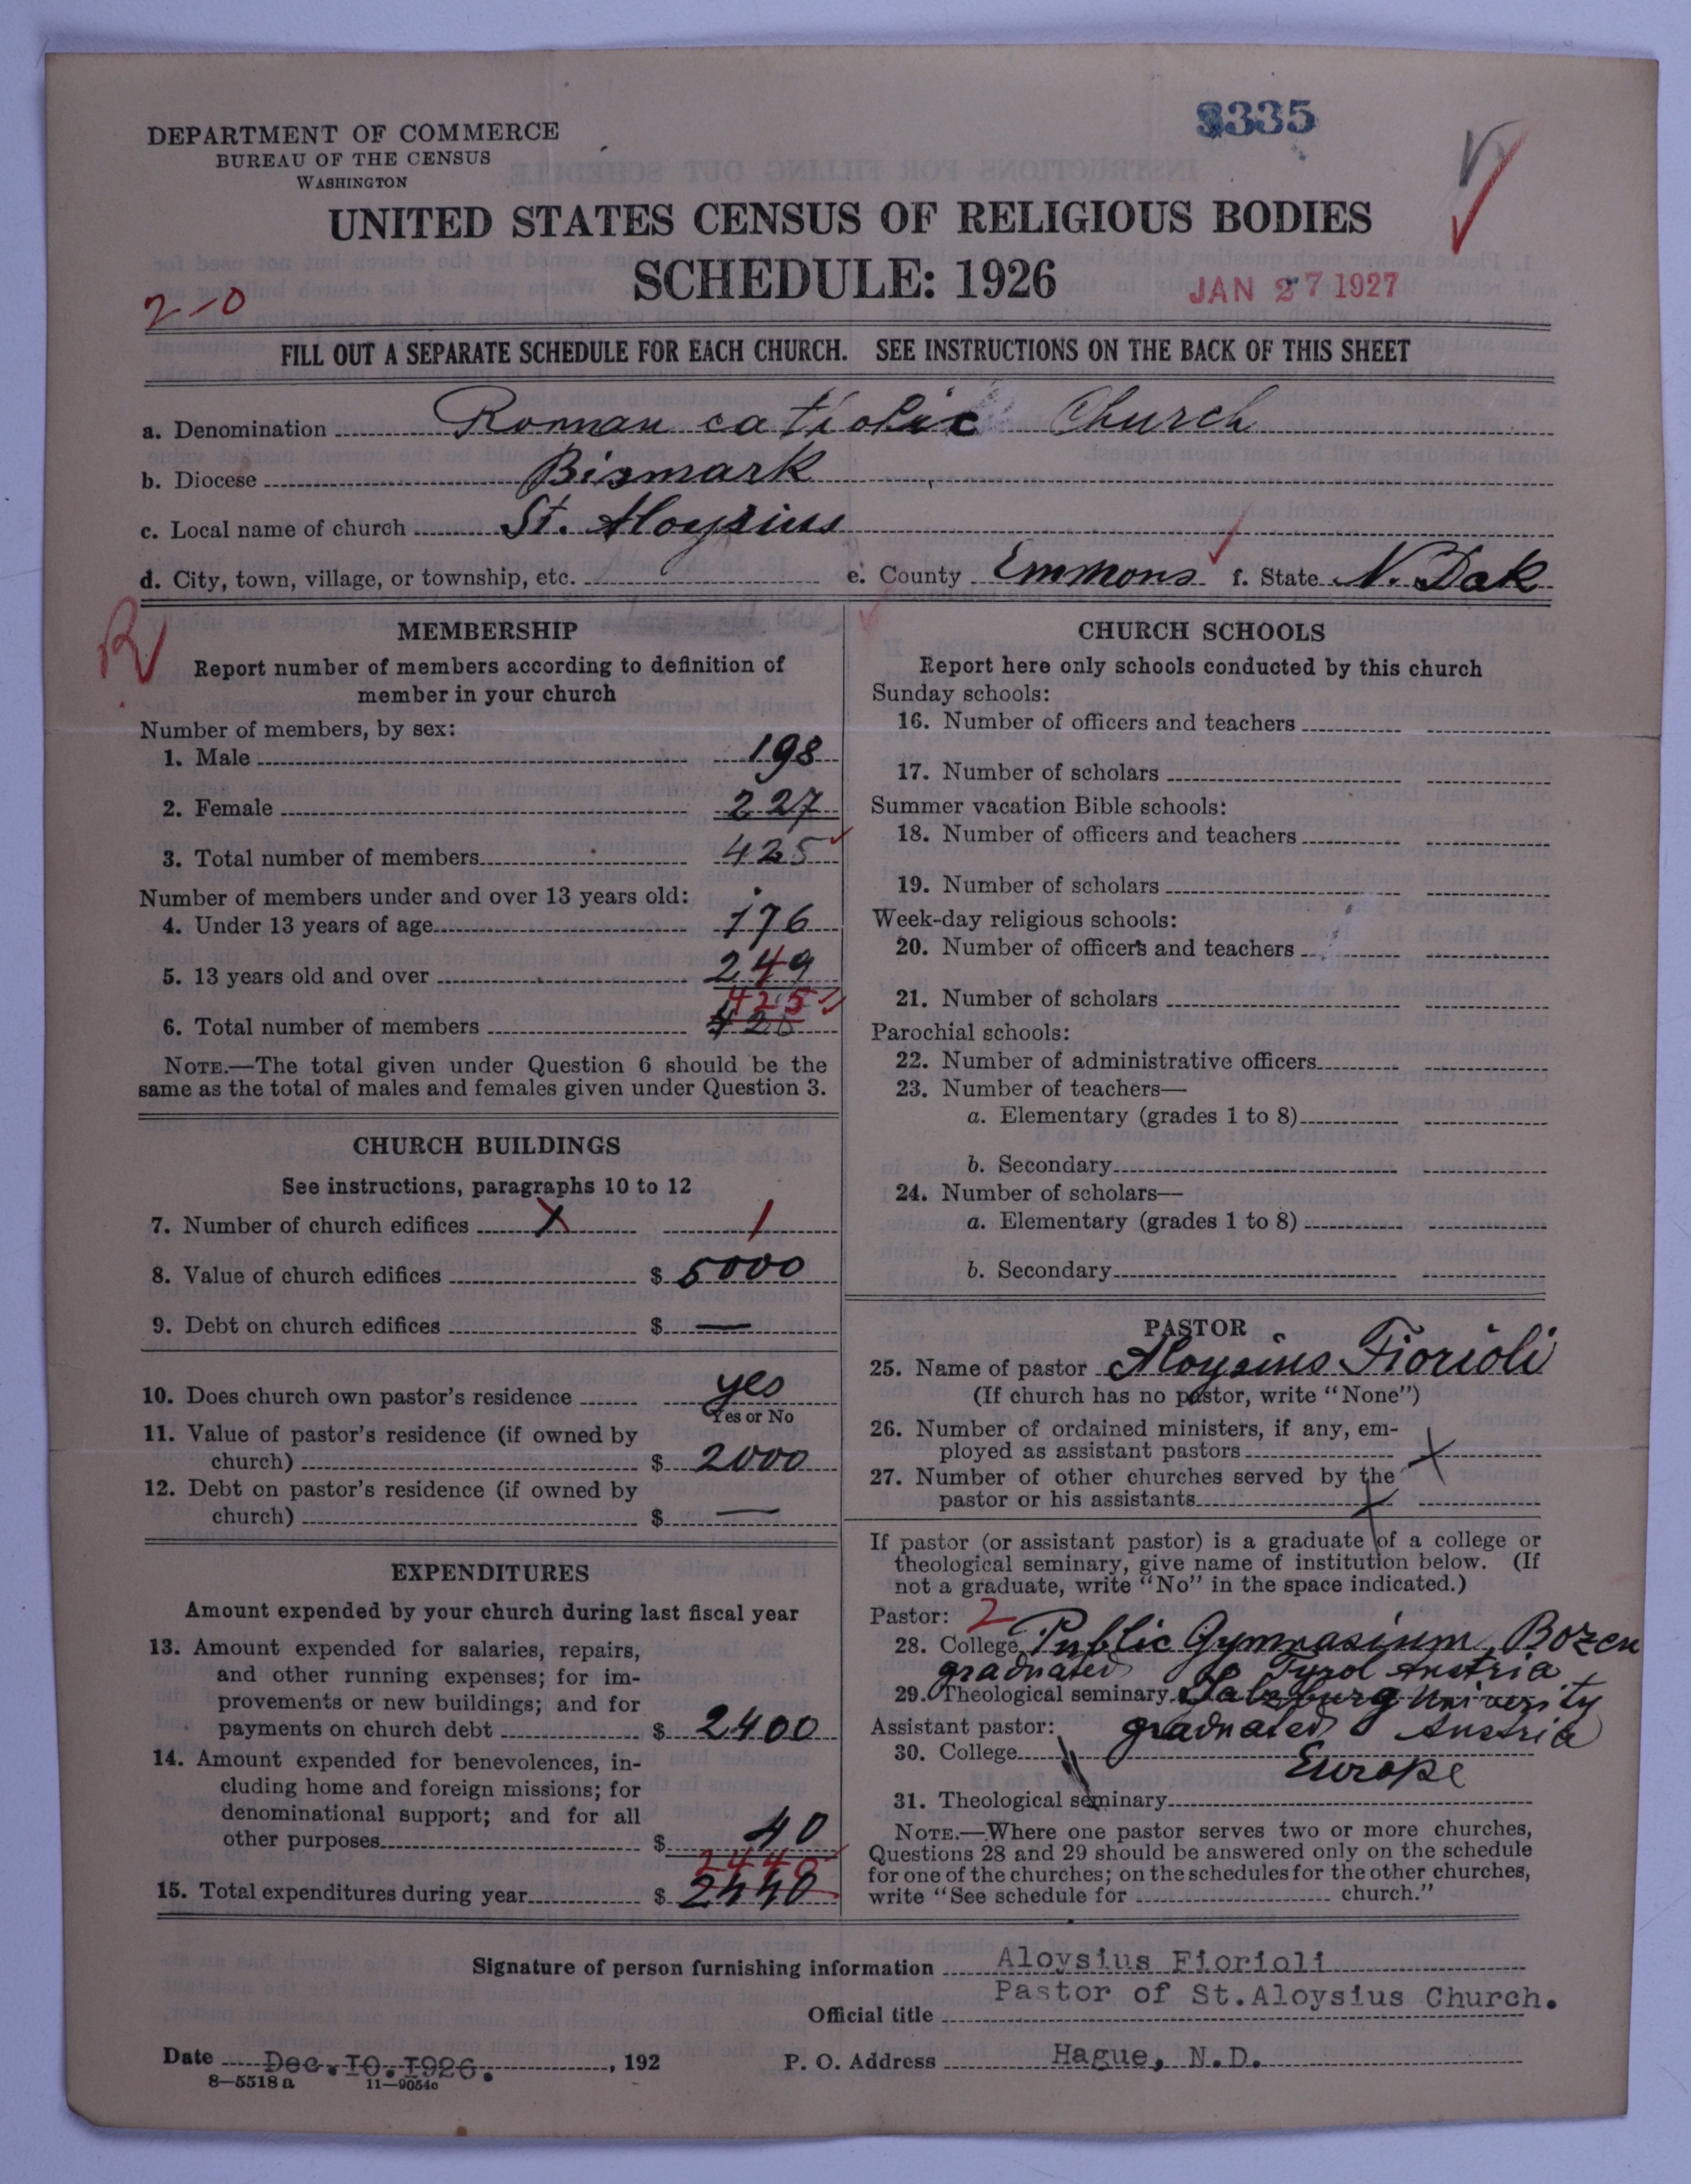 3335
DEPARTMENT OF COMMERCE
BUREAU OF THE CENSUS
WASHINGTON
UNITED STATES CENSUS OF RELIGIOUS BODIES
SCHEDULE: 1926
JAN 27 1927
2-0
FILL OUT A SEPARATE SCHEDULE FOR EACH CHURCH. SEE INSTRUCTIONS ON THE BACK OF THIS SHEET
a. Denomination Roman catholic Church
b. Diocese Bismark
c. Local name of church St. Aloysius
d. City, town, village, or township, etc. e. County Emmons f. State N. Dak
R
MEMBERSHIP
Report number of members according to definition of
member in your church
Number of members, by sex:
1. Male 198
2. Female 227
3. Total number of members 425
Number of members under and over 13 years old:
4. Under 13 years of age 176
5. 13 years old and over 249
425
6. Total number of members
NOTE.—The total given under Question 6 should be the
same as the total of males and females given under Question 3.
CHURCH BUILDINGS
See instructions, paragraphs 10 to 12
7. Number of church edifices X 1
8. Value of church edifices $ 5000
9. Debt on church edifices $ —
10. Does church own pastor's residence yes
Yes or No
11. Value of pastor's residence (if owned by
church) $ 2000
12. Debt on pastor's residence (if owned by
church) $ —
EXPENDITURES
Amount expended by your church during last fiscal year
13. Amount expended for salaries, repairs,
and other running expenses; for im-
provements or new buildings; and for
payments on church debt $ 2400
14. Amount expended for benevolences, in-
cluding home and foreign missions; for
denominational support; and for all
other purposes $ 40
2440
15. Total expenditures during year $ 2440
CHURCH SCHOOLS
Report here only schools conducted by this church
Sunday schools:
16. Number of officers and teachers
17. Number of scholars
Summer vacation Bible schools:
18. Number of officers and teachers
19. Number of scholars
Week-day religious schools:
20. Number of officers and teachers
21. Number of scholars
Parochial schools:
22. Number of administrative officers
23. Number of teachers—
a. Elementary (grades 1 to 8)
b. Secondary
24. Number of scholars—
a. Elementary (grades 1 to 8)
b. Secondary
PASTOR
25. Name of pastor Aloysius Fiorioli
(If church has no pastor, write "None")
26. Number of ordained ministers, if any, em-
ployed as assistant pastors X
27. Number of other churches served by the
pastor or his assistants X
If pastor (or assistant pastor) is a graduate of a college or
theological seminary, give name of institution below. (If
not a graduate, write "No" in the space indicated.)
Pastor: 2
28. College Public Gymnasium, Bozen
graduated Tyrol Austria
29. Theological seminary Salzburg University
Assistant pastor: graduated Austria
30. College
Europe
31. Theological seminary
NOTE.—Where one pastor serves two or more churches,
Questions 28 and 29 should be answered only on the schedule
for one of the churches; on the schedules for the other churches,
write "See schedule for church."
Signature of person furnishing information Aloysius Fiorioli
Official title Pastor of St.Aloysius Church.
Date Dec.I0.I926., 192 P. O. Address Hague, N.D.
8—5518 a 11—9054c